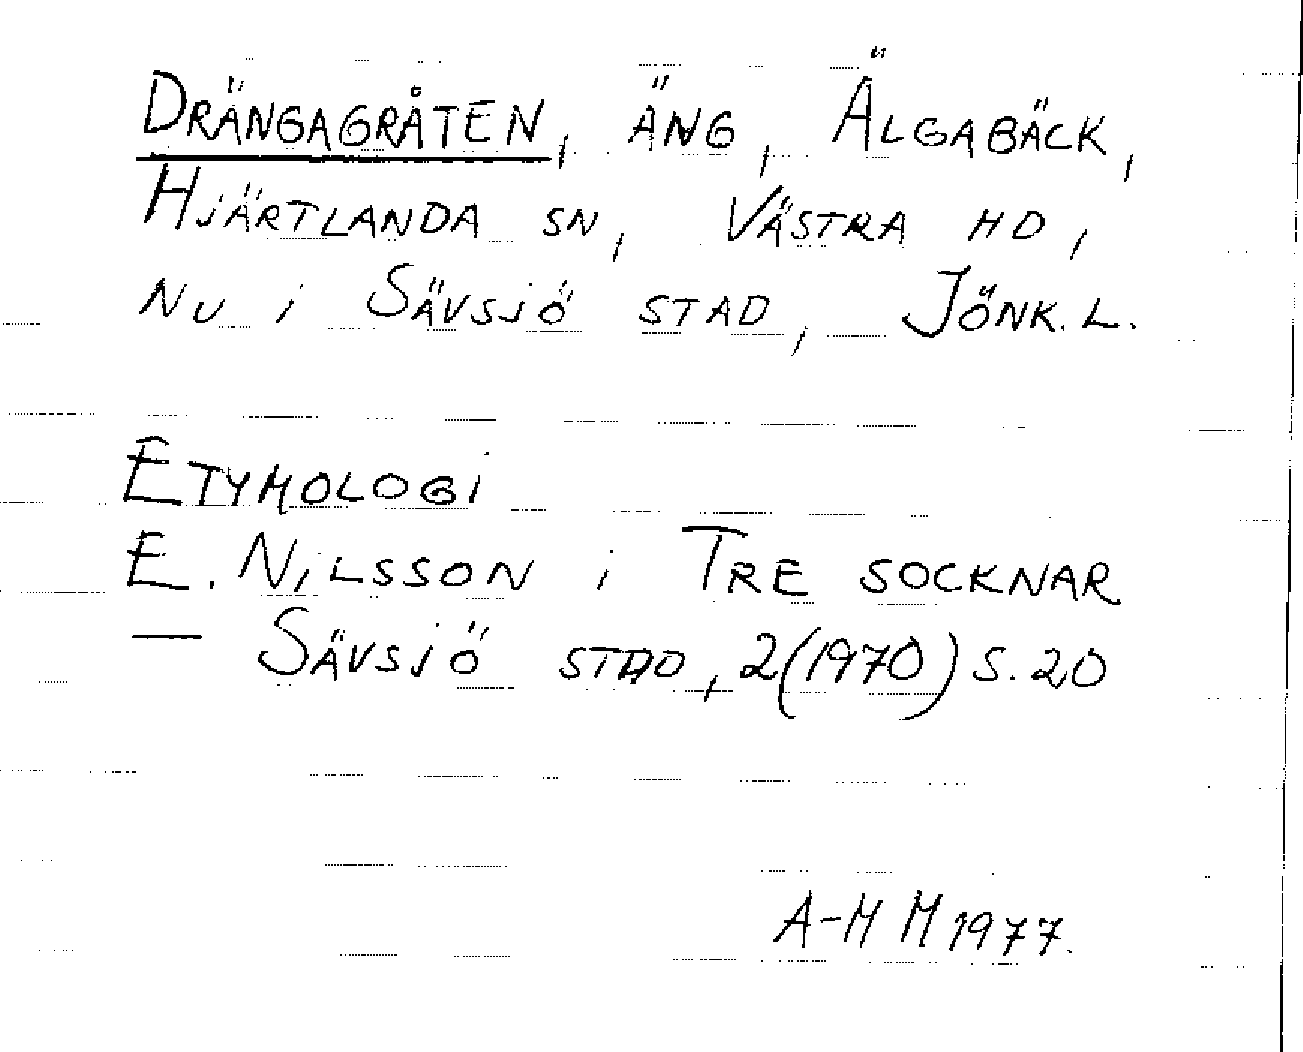 DRÄNGAGRÅTEN, ÄNG, ÄLGABÄCK,
HJÄRTLANDA SN, VÄSTRA HD,
NU I SÄVSJÖ STAD, JÖNK. L.
ETYMOLOGI
E. NILSSON i TRE SOCKNAR
— SÄVSJÖ STAD, 2(1970) S. 20
A-M M 1977.